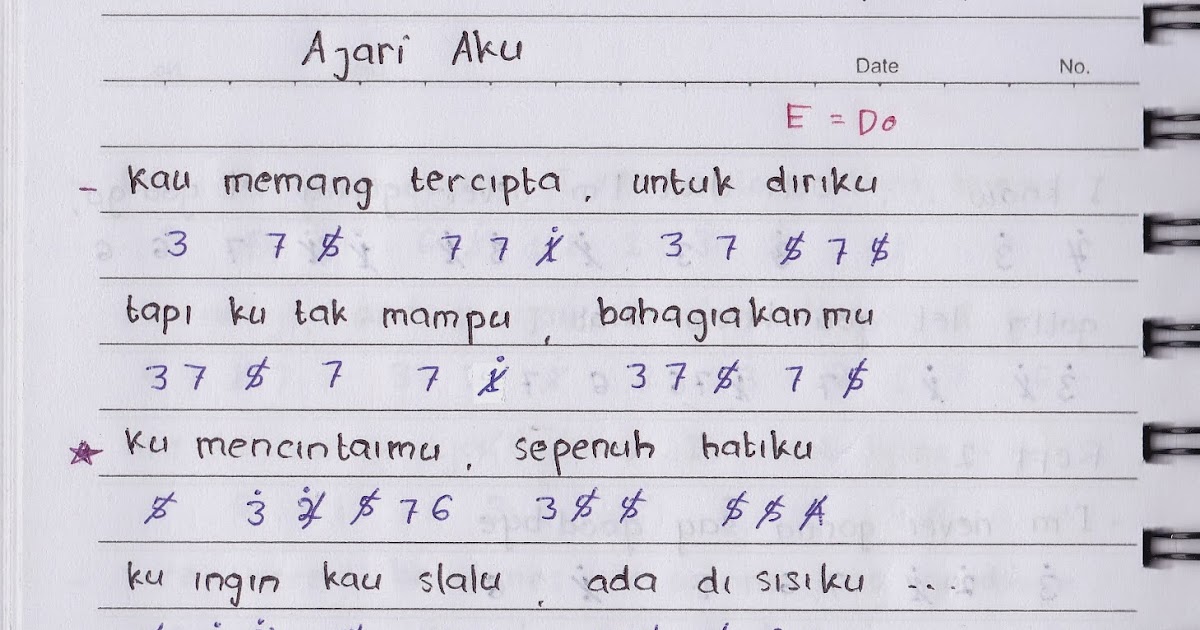 Ajari Aku
Date No.
E = Do
- Kau memang tercipta, untuk diriku
3 7 5̸ 7 7 1̸̇ 3 7 5̸ 7 5̸
tapi ku tak mampu, bahagiakanmu
3 7 5̸ 7 7 1̸̇ 3 7 5̸ 7 5̸
★ Ku mencintaimu, sepenuh hatiku
5̸ 3̇ 2̸̇ 5̸ 7 6 3 5̸ 5̸ 5̸ 5̸ 4̸
ku ingin kau slalu, ada di sisiku ...